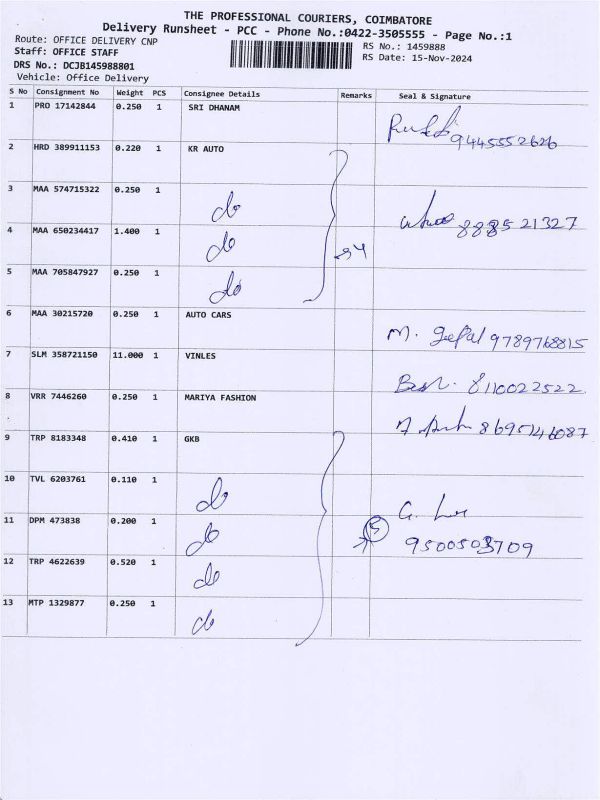 THE PROFESSIONAL COURIERS, COIMBATORE
Delivery Runsheet - PCC - Phone No.:0422-3505555 - Page No.:1
Route: OFFICE DELIVERY CNP
Staff: OFFICE STAFF
DRS No.: DCJB145988801
Vehicle: Office Delivery
RS No.: 1459888
RS Date: 15-Nov-2024
S No Consignment No Weight PCS Consignee Details Remarks Seal & Signature
1 PRO 17142844 0.250 1 SRI DHANAM 9445552626
2 HRD 389911153 0.220 1 KR AUTO
3 MAA 574715322 0.250 1 do 8885 21327
4 MAA 650234417 1.400 1 do
5 MAA 705847927 0.250 1 do
6 MAA 30215720 0.250 1 AUTO CARS M. Gopal 9789768815
7 SLM 358721150 11.000 1 VINLES 8110022522
8 VRR 7446260 0.250 1 MARIYA FASHION
9 TRP 8183348 0.410 1 GKB
10 TVL 6203761 0.110 1 do
11 DPM 473838 0.200 1 do 5
12 TRP 4622639 0.520 1 do
13 MTP 1329877 0.250 1 do